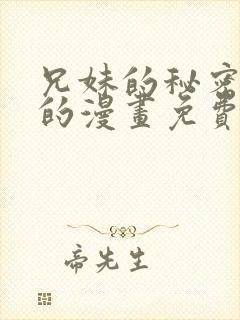 兄妹的秘密
的漫畫免費
帝先生